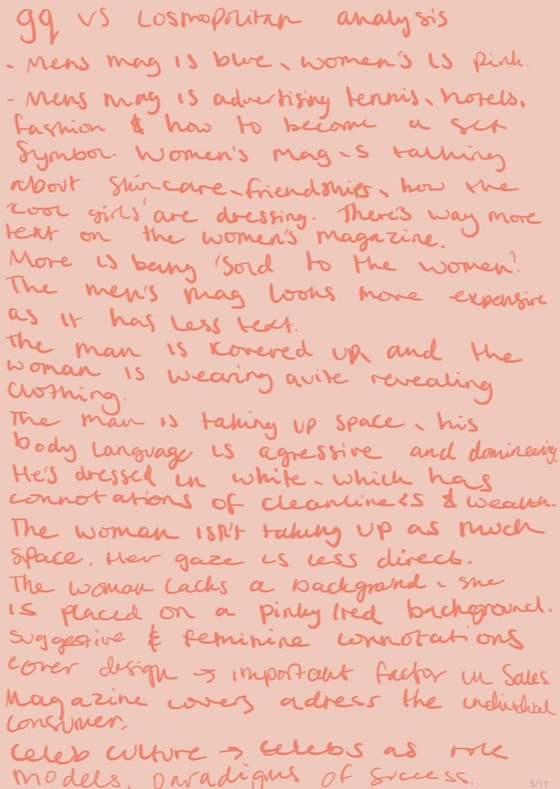 gq vs cosmopolitan analysis
- Mens mag is blue, women's is pink.
- Mens mag is advertising tennis, hotels,
fashion & how to become a sex
symbol. Women's mag is talking
about skincare, friendships, how the
'cool girls' are dressing. There's way more
text on the women's magazine.
More is being 'sold to the women'.
The men's mag looks more expensive
as it has less text.
The man is covered up, and the
woman is wearing quite revealing
clothing.
The man is taking up space, his
body language is agressive and domineering.
He's dressed in white, which has
connotations of cleanliness & wealth.
The woman isn't taking up as much
space. Her gaze is less direct.
The woman lacks a background, she
is placed on a pinky/red background.
suggestive & feminine connotations
cover design → important factor in sales
Magazine covers adress the individual
consumer.
Celeb culture → celebs as role
models, paradigms of success.
5/11